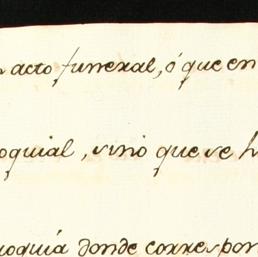 acto funeral, ó que en
oquial, sinó que se h
roquiá donde correspon